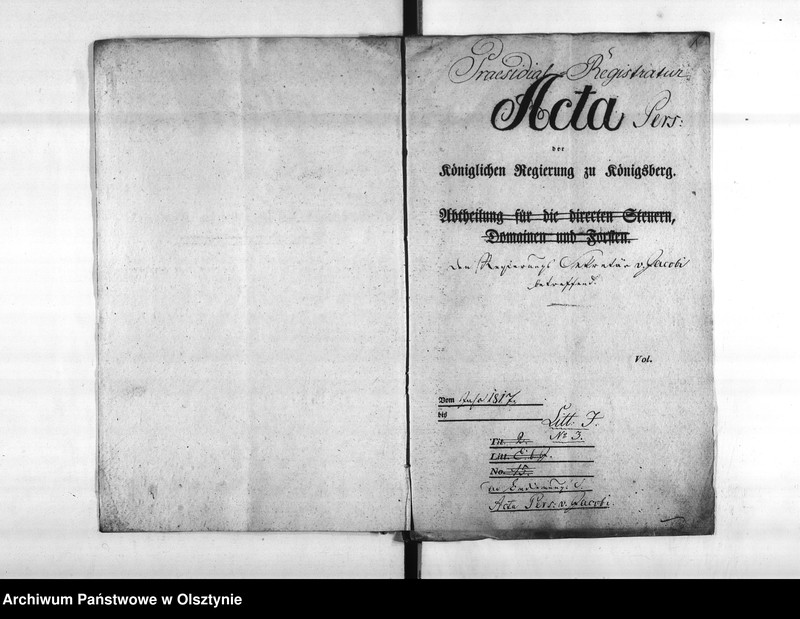 Praesidial-Registratur
Acta Pers:
der
Königlichen Regierung zu Königsberg.
Abtheilung für die directen Steuern,
Domainen und Forsten.
den Regierungs Sekretär v. Jacobi
betreffend.
Vol.
Vom Jahr 1817.
bis
Litt: J.
No 3.
Tit. 2.
Litt.
No. 15.
Acta Pers: v. Jacobi.
Archiwum Państwowe w Olsztynie